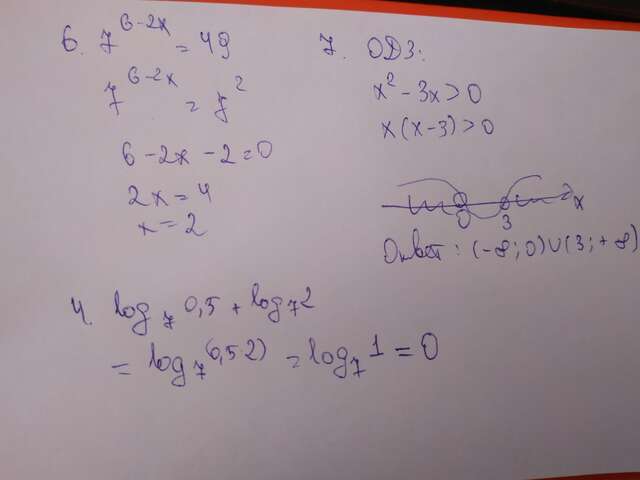 6. 7^{6-2x} = 49
7^{6-2x} = 7^2
6 - 2x - 2 = 0
2x = 4
x = 2
7. ОДЗ:
x^2 - 3x > 0
x(x-3) > 0
0 3 x
Ответ: (-∞; 0) ∪ (3; +∞)
4. log_7 0,5 + log_7 2
= log_7 (0,5 2) = log_7 1 = 0